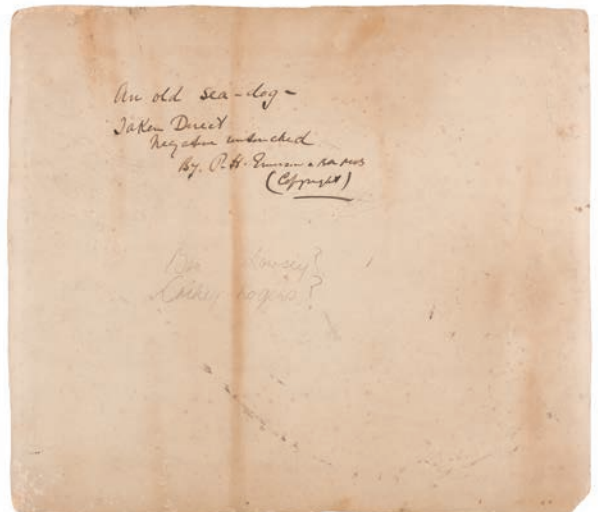 An old sea-dog-
Taken Direct
Negative untouched
By. P. H. Emerson
(Copyright)
rogers?